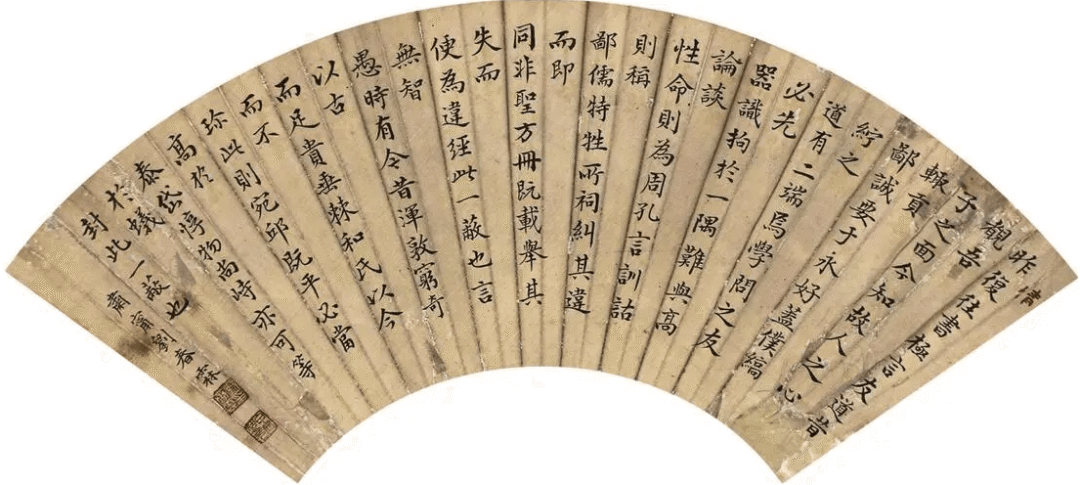 清
昨復往書極言友道昔
覿吾
子之面今知故人之心
輙貢
鄙誠要于永好蓋僕縞
紵之
道有二端為學問之友
必先
器識拘於一隅難與高
論談
性命則為周孔言訓詁
則稱
鄙儒特牲所祠糾其違
而即
同非聖方冊既載舉其
失而
便為違經此一蔽也言
無智
愚時有今昔渾敦窮奇
以古
而足貴垂棘和氏以今
而不
珍此則宛邱既平必當
高於
泰岱惇物尚峙亦可等
於蟻
封此一蔽也
肅甯劉春霖